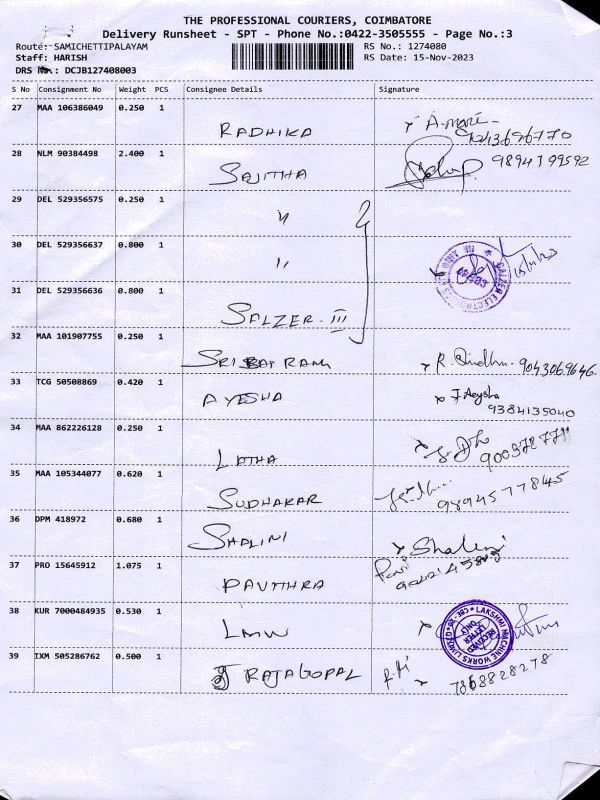 THE PROFESSIONAL COURIERS, COIMBATORE
Delivery Runsheet - SPT - Phone No.:0422-3505555 - Page No.:3
Route: SAMICHETTIPALAYAM RS No.: 1274080
Staff: HARISH RS Date: 15-Nov-2023
DRS No.: DCJB127408003
S No Consignment No Weight PCS Consignee Details Signature
27 MAA 106386049 0.250 1
RADHIKA
28 NLM 90384498 2.400 1
SAJITHA 9894199592
29 DEL 529356575 0.250 1
〃
30 DEL 529356637 0.800 1
〃 15/11/23
31 DEL 529356636 0.800 1
SALZER III
32 MAA 101907755 0.250 1
SRI RAM R. Sindhu. 9043069646.
33 TCG 50508869 0.420 1
AYESHA J. Aeysha
9384135040
34 MAA 862226128 0.250 1
LATHA
35 MAA 105344077 0.620 1
SUDHAKAR 9894577845
36 DPM 418972 0.680 1
SHALINI Shalini
37 PRO 15645912 1.075 1
PAVITHRA
38 KUR 7000484935 0.530 1
LMW LAKSHMI MACHINE WORKS LIMITED
39 IXM 505286762 0.500 1
RAJAGOPAL 7868828278